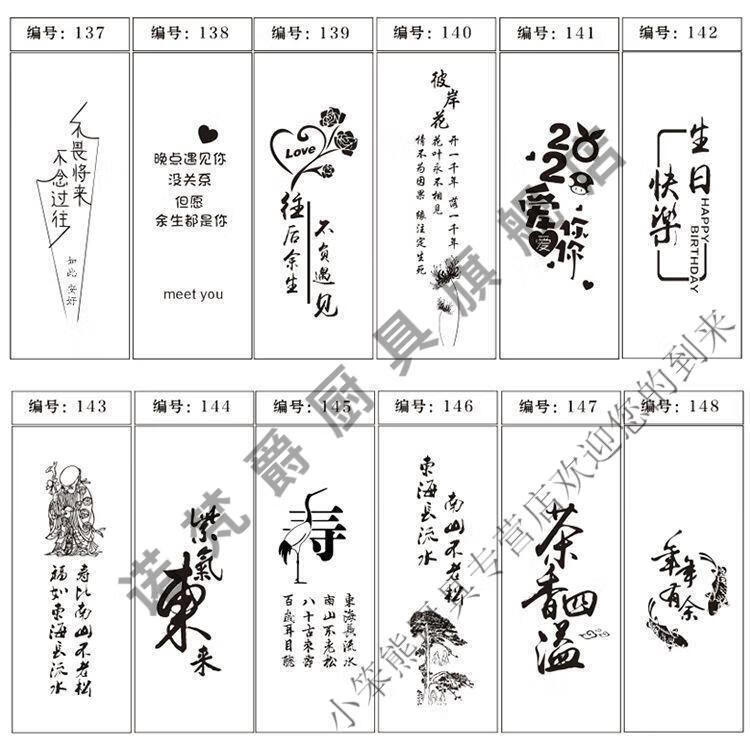 编号：137
不畏将来
不念过往
如此 安好
编号：138
晚点遇见你
没关系
但愿
余生都是你
meet you
编号：139
Love
往后余生
不负遇见
编号：140
彼岸花
开一千年 落一千年
花叶永不相见
情不为因果 缘注定生死
编号：141
爱
爱
你你
编号：142
生日
快樂
HAPPY
BIRTHDAY
编号：143
寿比南山不老松
福如東海長流水
编号：144
紫氣
東来
编号：145
寿
東海長流水
南山不老松
八十古来稀
百歲耳目聰
编号：146
南山不老松
東海長流水
编号：147
茶香四溢
编号：148
年年
有余
诺梵爵厨具旗舰店
小笨熊厨具专营店欢迎您的到来